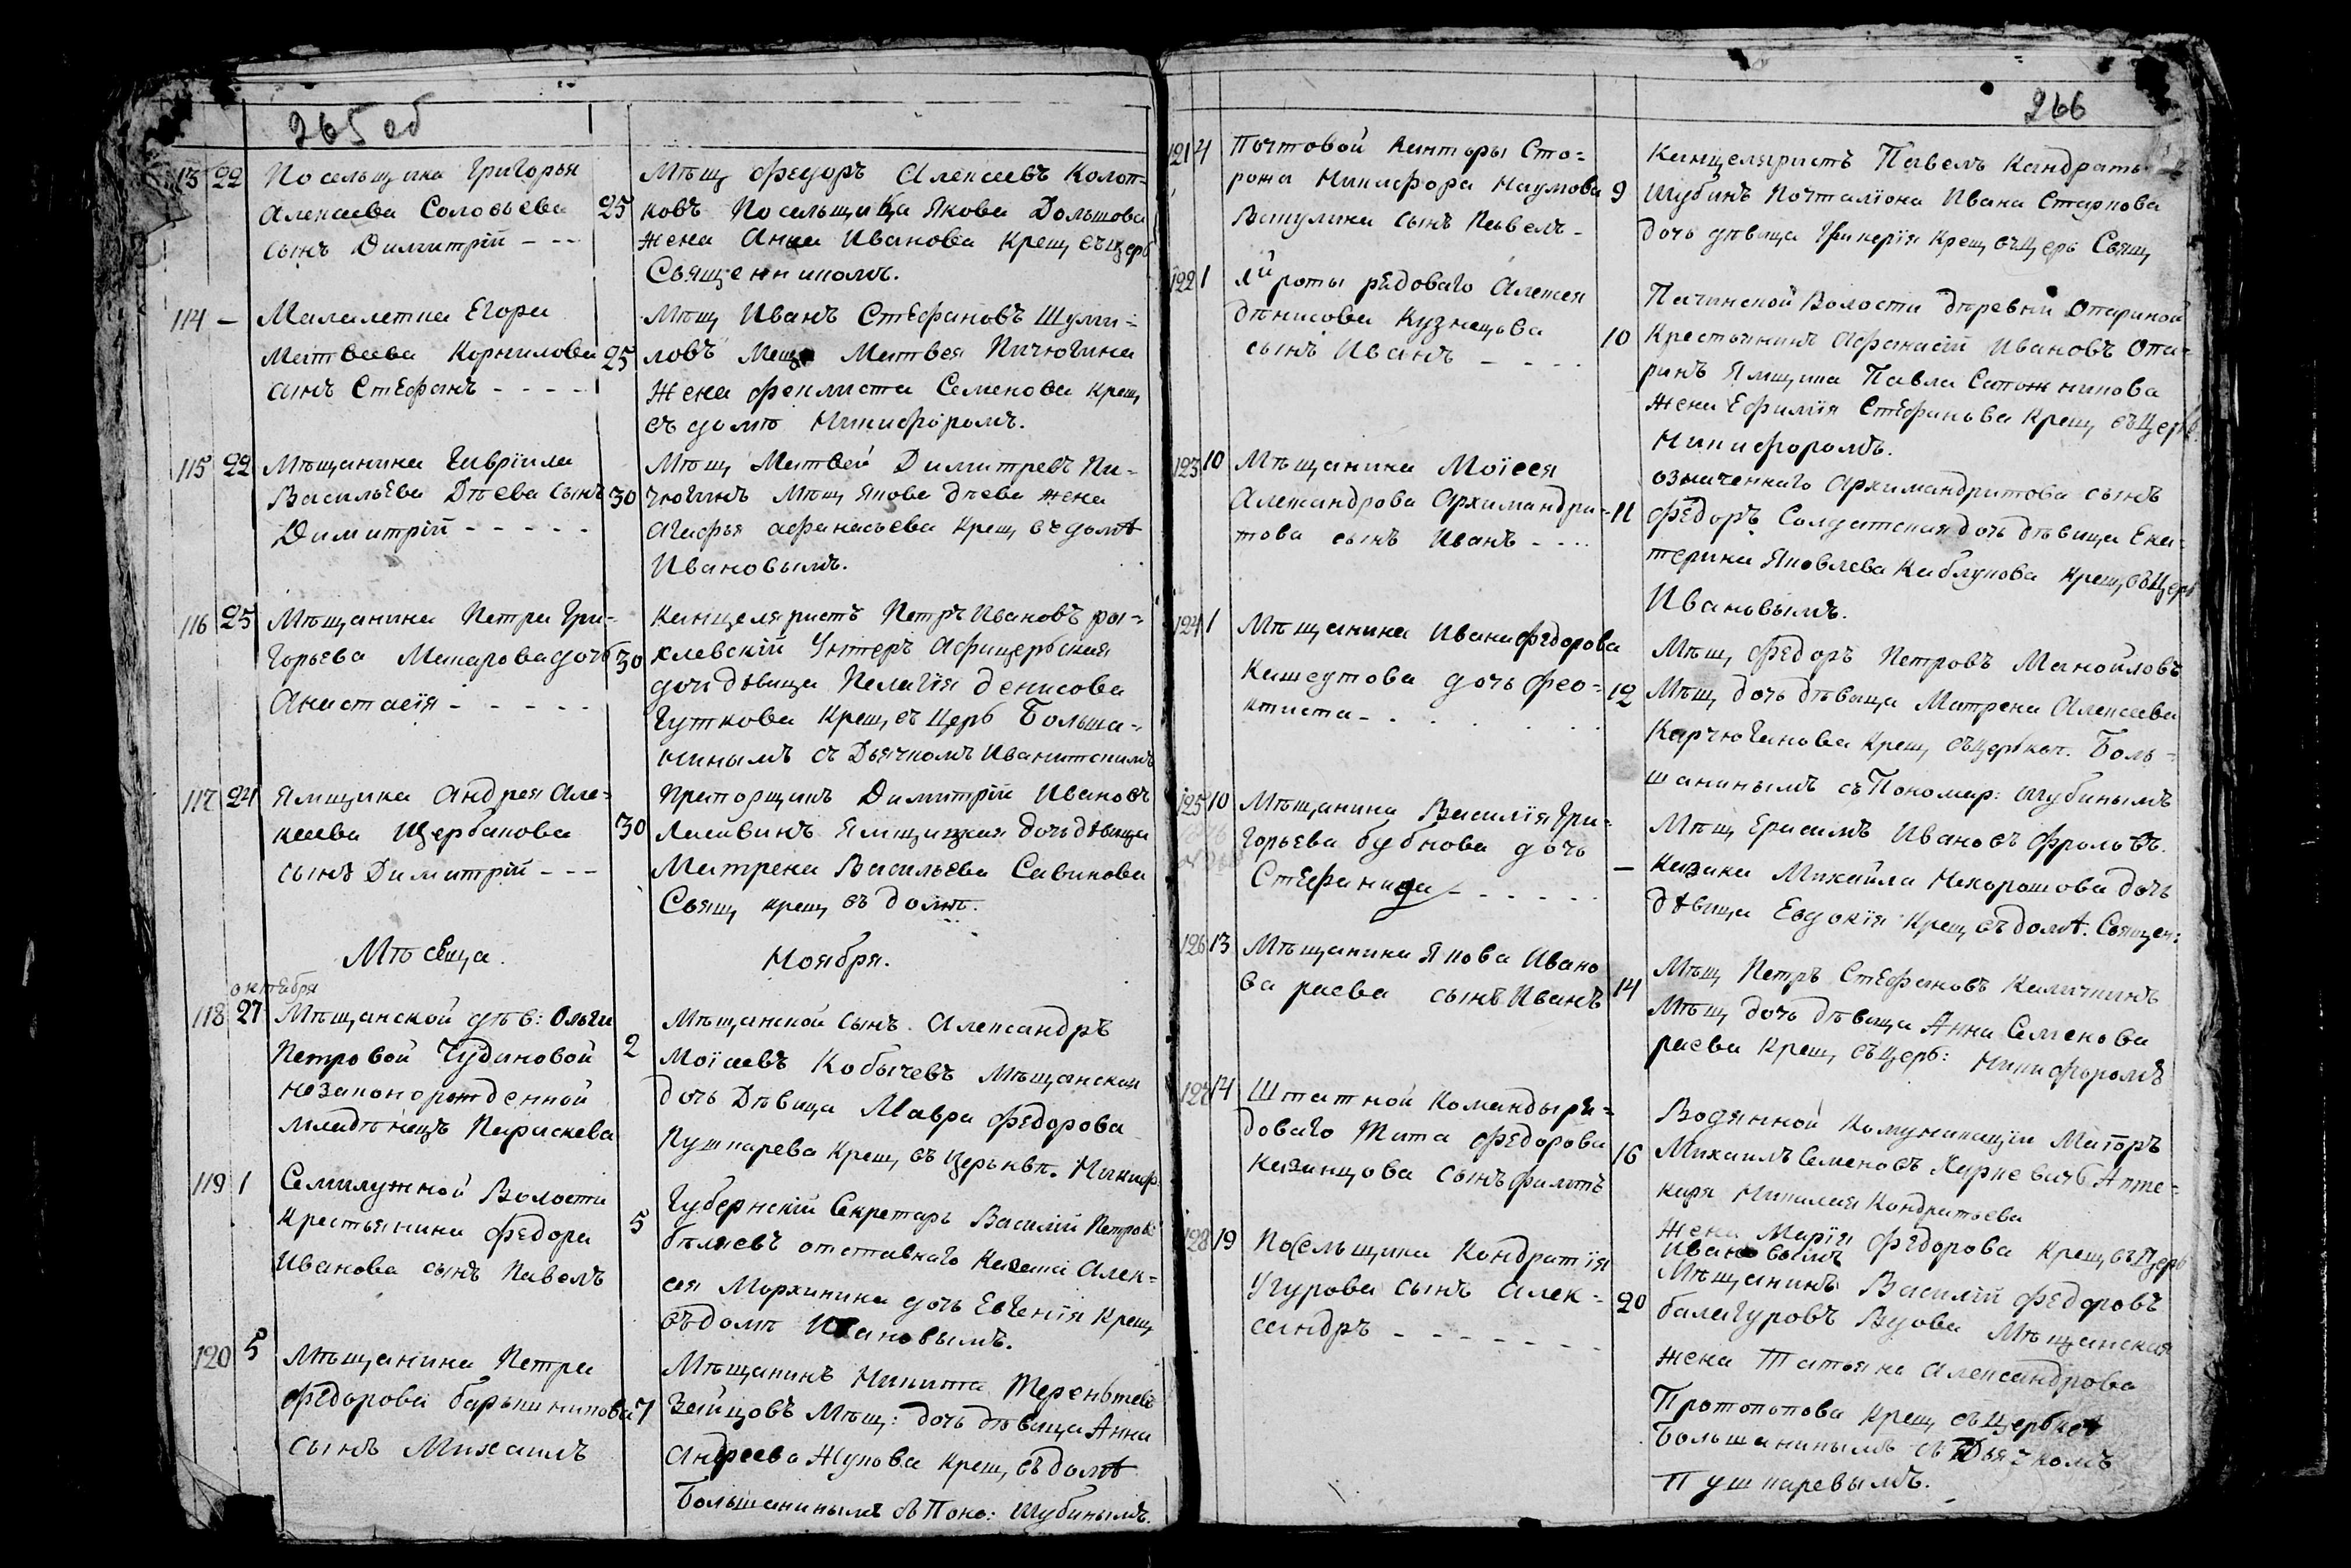 265 об
113 22 Посельщика Григорья
Алексеева Соловьева
сынъ Димитрій - - -
25
Мѣщ Федоръ Алексеевъ Колот-
ковъ Посельщика Якова Дольшова
жена Анна Иванова Крещ въ церк
Священникомъ.
114 - Малалетна Егора
Матвеева Корнилова
сынъ Стефанъ - - - -
25
Мѣщ Иванъ Стефановъ Шуми-
ловъ Мещ Матвея Пичюгина
жена Феклиста Семенова крещ
въ домѣ Никифоромъ.
115 22 Мѣщанина Гавріила
Васильева Дѣева сынъ
Димитрій - - - - -
30
Мѣщ Матвей Димитревъ Пи-
чюгинъ Мѣщ Якова дѣева жена
Агафья Афанасьева крещ въ домѣ
Ивановымъ.
116 25 Мѣщанина Петра Гри-
горьева Макарова дочь
Анастасія - - - - -
30
Канцеляристъ Петръ Ивановъ ры-
хлевскій Унтеръ Афицерьская
дочь дѣвица Пелагія Денисова
Гуткова Крещ въ Церк Больша-
нинымъ съ Дьячкомъ Иванитскимъ
117 24 Ямщика Андрея Але-
ксеева Щербакова
сынъ Димитрій - - -
30
Прапорщикъ Димитрій Ивановъ
Лесивинъ Ямщицкая дочь дѣвица
Матрена Васильева Савинова
Свящ крещ въ домѣ.
Мѣсеца. Ноября.
октебря
118 27 Мѣщанской дѣв: Ольги
Петровой Чудиновой
незаконорожденной
младѣнецъ Параскева
2
Мѣщанской Сынъ Александръ
Моісеевъ Кобычевъ Мѣщанская
дочь Дѣвица Мавра Федорова
Пушкарева Крещ въ Церьквѣ. Никиф.
119 1 Семилужной Волости
Крестьянина Федора
Иванова сынъ Павелъ
5
Губернскій Секретарь Василій Петровъ
бѣляевъ отставнаго Казака Алек-
сея Мархинина дочь Евгенія Крещ
въ домѣ Ивановымъ.
120 5 Мѣщанина Петра
Федорова барышникова
сынъ Михаилъ
7
Мѣщанинъ Никита Тереньтевъ
Зайцовъ Мѣщ: дочь дѣвица Анна
Андреева Жукова Крещ въ домѣ
Большанинымъ съ Поно: Шубинымъ.
266
121 4 Почтовой Канторы Сто-
рожа Никифора Наумова
Вакулина сынъ Павелъ -
9
Канцеляристъ Павелъ Кандратьевъ
Шубинъ Почталіона Ивана Старкова
дочь дѣвица Гликерія Крещ въ Церк Свящ
122 1 1й роты редоваго Алексея
Дѣнисова Кузнецова
сынъ Иванъ - - - -
10
Пачинской Волости дѣревни Опариной
Крестьянинъ Афанасій Ивановъ Опа-
ринъ Ямщика Павла Сапожникова
жена Ефимія Стефанова Крещ въ Церк.
Никифоромъ.
123 10 Мѣщанина Моісея
Александрова Архимандри-
това сынъ Иванъ - - -
11
означеннаго Архимандритова сынъ
Федоръ Солдатская дочь дѣвица Ека-
терина Яковлева Каблукова Крещ въ Церк
Ивановымъ.
124 1 Мѣщанина Ивана Федорова
Кашеутова дочь Фео-
ктиста - - - -
12
Мѣщ Федоръ Петровъ Манойловъ
Мѣщ дочь дѣвица Матрена Алексеева
Карчюганова Крещ въ церькви. Боль-
шанинымъ съ Пономар: Шубинымъ
125 10 Мѣщанина Василія Гри-
горьева бубнова дочь
Стефанида - - - - -
-
Мѣщ Ерасимъ Ивановъ Фроловъ.
Казака Михайла Некорошова дочь
дѣвица Евдокія Крещ въ домѣ. Священ:
126 13 Мѣщанина Якова Ивано
ва раева сынъ Иванъ
14
Мѣщ Петръ Стефановъ Калачнинъ
Мѣщ дочь дѣвица Анна Семенова
раева Крещ въ Церк: Никифоромъ
127 14 Штатной Команды ре-
доваго Тита Федорова
Казанцова сынъ Филипъ
16
Водянной Комуникаціи Маіоръ
Михаилъ Семеновъ Хуркевичь Апте-
каря Николая Кондратьева
жена Марія Федорова Крещ въ Церк
Ивановымъ
128 19 Посельщика Кондратія
Угурова сынъ Алек-
сандръ - - - - -
20
Мѣщанинъ Василій Федоровъ
балагуровъ Вдова Мѣщанская
жена Татьяна Александрова
Протопопова Крещ въ Церквѣ
Большанинымъ съ Дьячкомъ
Пушкаревымъ.